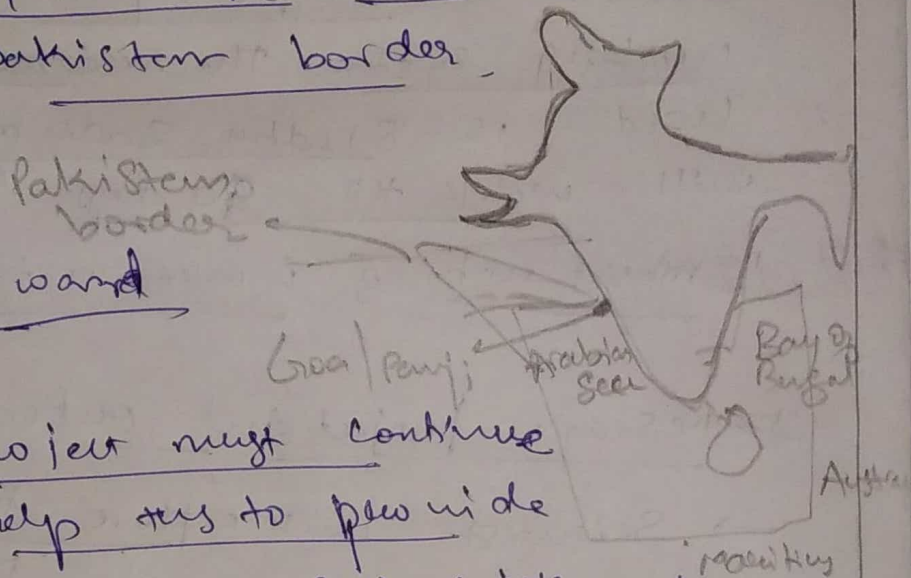 pakistan border.
Pakistans
border
ward
Goa/Panji
Arabian
Sea
Bay of
Bengal
oject must continue
elp tus to provide
Austra
Mauritius